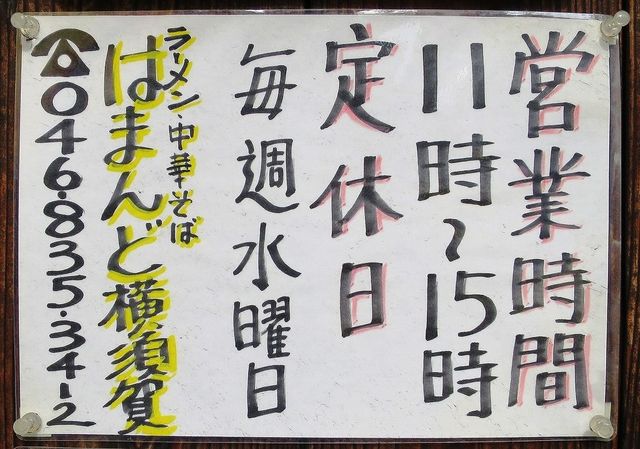 営業時間
11時~15時
定休日
毎週水曜日
ラーメン・中華そば
はまんど横須賀
☎046・835・3412